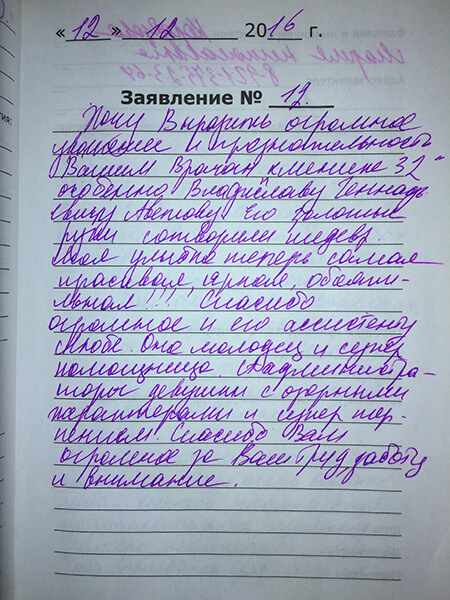 « 12 » 12 2016 г.
Заявление № 12.
Хочу Выразить огромное
уважение и признательность
Вашим Врачам клиники 32"
особенно Владиславу Геннадь-
евичу Аветову. Его золотые
руки сотворили шедевр.
Моя улыбка теперь самая
красивая, яркая, обаяти-
тельная!!! Спасибо
огромное и его ассистенту
Она молодец и супер
помощница. Администра-
торы девушки с озорными
характерами и супер тер-
пением. Спасибо Вам
огромное за Ваш Труд, заботу
и внимание.